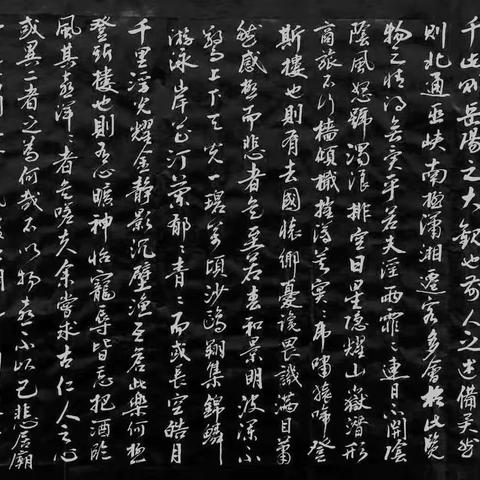 千此則岳陽之大觀也前人之述備矣然
則北通巫峽南極瀟湘遷客多會於此覽
物之情得無異乎若夫淫雨霏〻連月不開陰
陰風怒號濁浪排空日星隱耀山嶽潛形
商旅不行檣傾檝摧薄暮冥〻虎嘯猿啼登
斯樓也則有去國懷鄉憂讒畏譏滿目蕭
然感極而悲者矣至若春和景明波瀾不
驚上下天光一碧萬頃沙鷗翔集錦鱗
游泳岸芷汀蘭郁〻青〻而或長空皓月
千里浮光耀金靜影沉璧漁互答此樂何極
登斯樓也則有心曠神怡寵辱皆忘把酒臨
風其喜洋〻者矣嗟夫余嘗求古仁人之心
或異二者之為何哉不以物喜不以己悲居廟